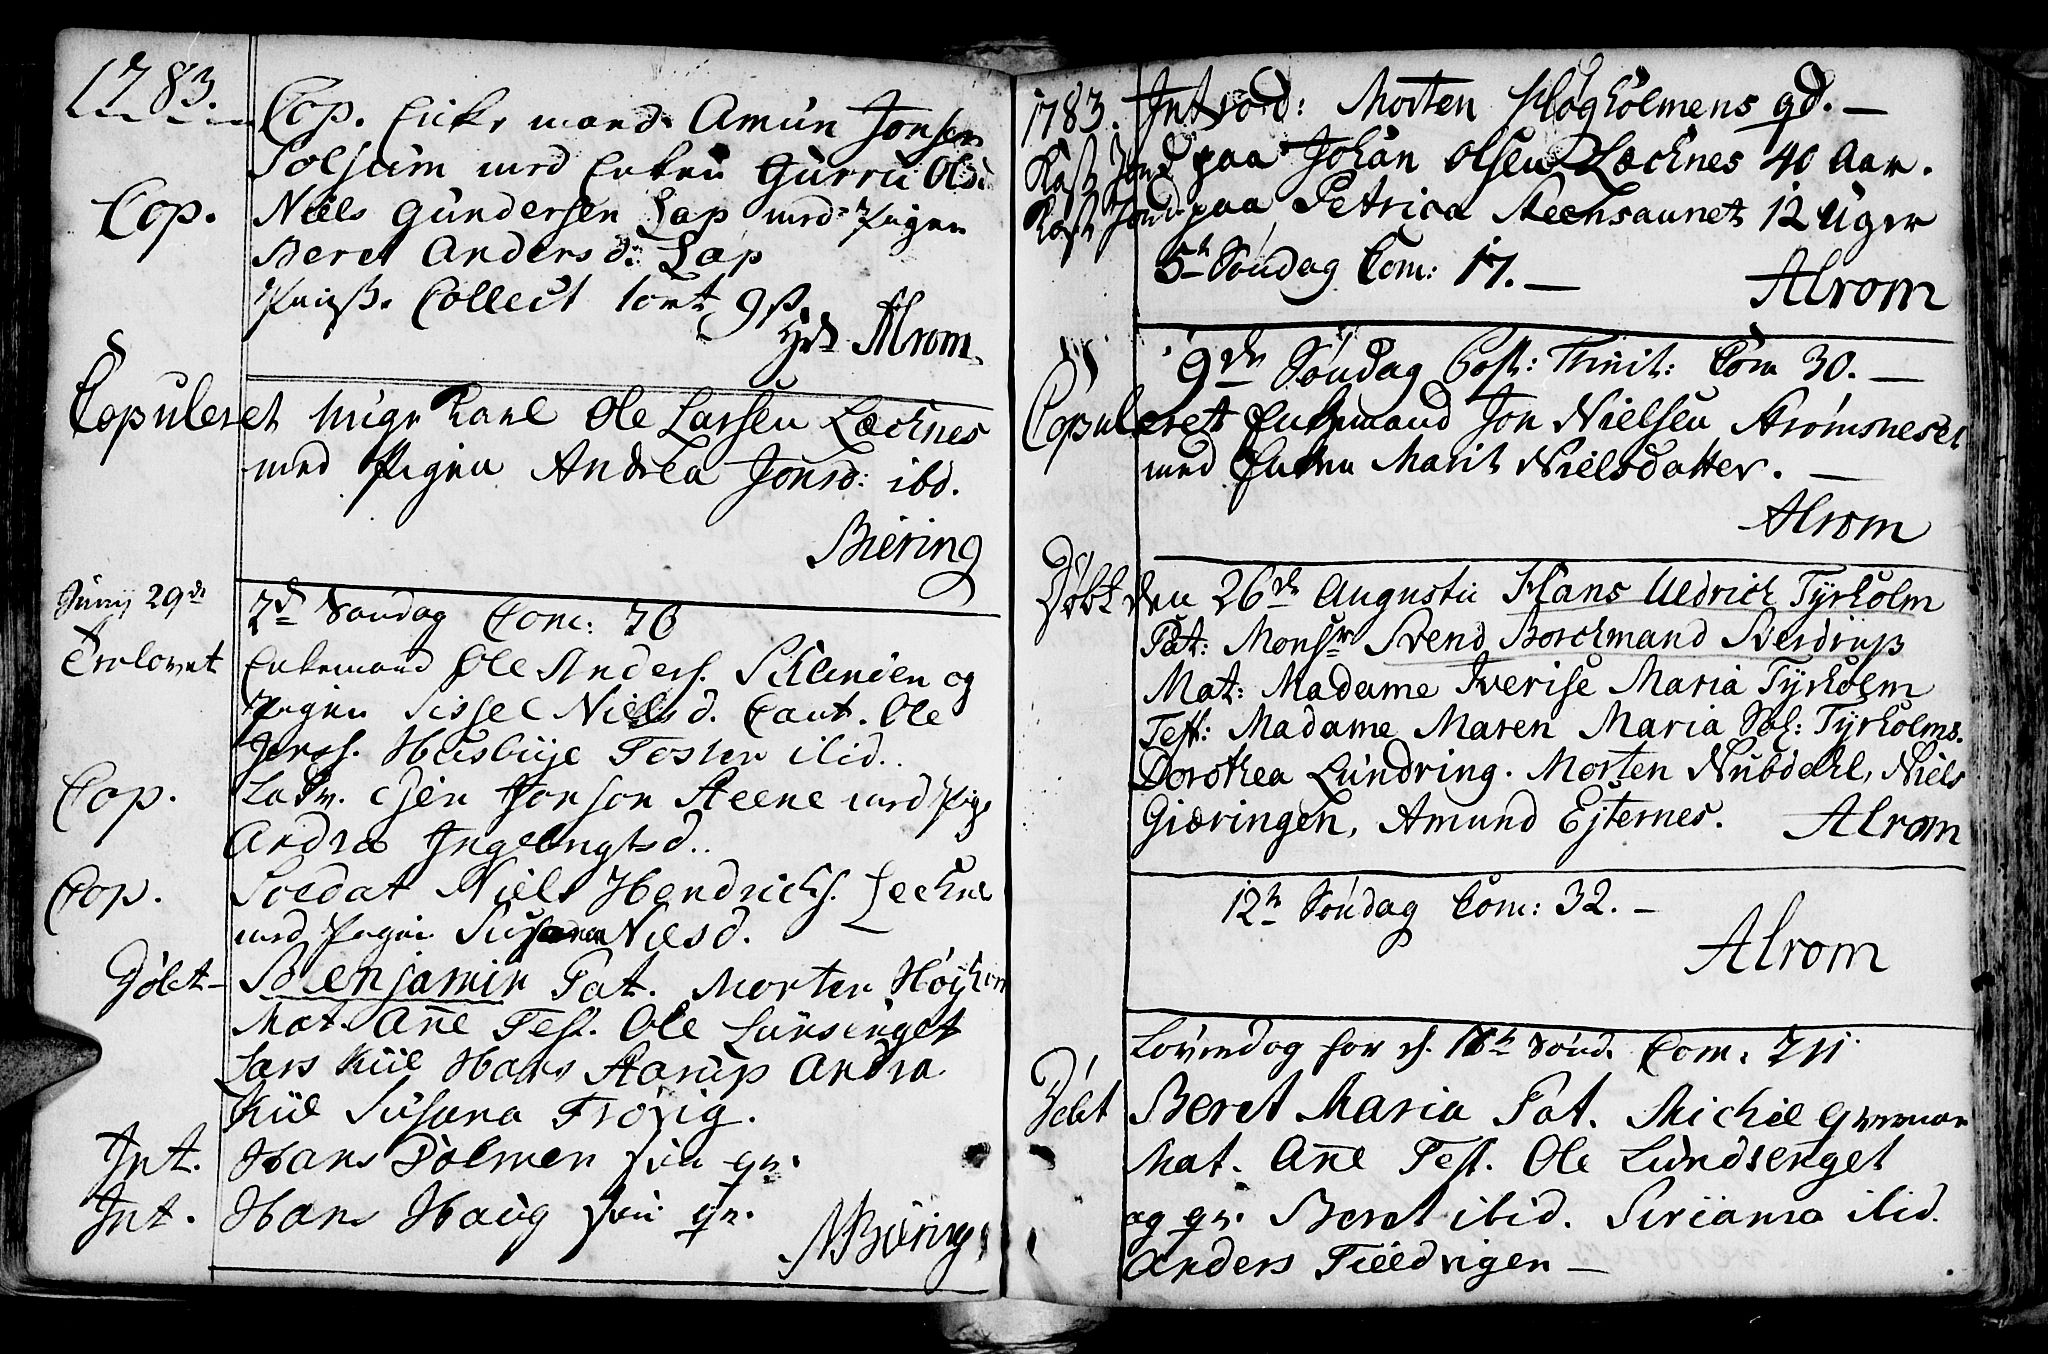 1783.
Cop. Enke mand Amun Jonsen
Solsum med Enken Gurru Olsd:
Cop. Niels Gundersen Lap med Pigen
Beret Anders d: Lap
Collect
Alrom.
Copuleret unge Karl Ole Larsen Lecknes
med Pigen Andrea Jonsd: ibd.
Biering
Junij 29de
2d Søndag Com: 76
Trolovet Enkemand Ole Anders. og
Pigen Sissel Nielsd. Caut. Ole
Husbÿe Tosten ibid.
Cop. Jonson Steene med Pige
Andrea Ingebrigtsd.
Cop. Soldat Niels Hendrichs. Leckne
med Pigen Susanna Nielsd.
Døbt Benjamin Pat. Morten Høÿholm
Mat. Añe Test. Ole Lunsenget
Lars Kiil Hans Aarup Andrea
Kiil Susana Frøvig.
Int. Hans Dolmen sin qv.
Int. Hans Haug sin qv.
Biering
1783. Introd: Morten Høgholmens qd. —
Kast Jord paa Johan Olsen Lecknes 40 Aar.
Kast Jord paa Petrica Steensaunet 12 Uger
5te Søndag Com: 17. —
Alrom
9de Søndag Post: Trinit: Com 30. —
Copuleret Enkemand Jon Nielsen Strømsneset
med Enken Marit Nielsdatter. —
Alrom
Døbt den 26de Augustii Hans Uldrich Tyrholm
Pat: Monsr Svend Borchmand Sverdrup
Mat: Madame Iverise Maria Tyrholm
Test: Madame Maren Maria Sal: Tyrholms.
Dorothea Lundring. Morten Nubdahl, Niels
Giæringen, Amund Ejternes. Alrom
12te Søndag Com: 32. —
Alrom
Løverdag for d. 18de Sønd. Com:
Døbt Beret Maria Pat. Michel
Mat. Añe Test. Ole Lundsenget
og qv. Beret ibid. Siriana ibid.
Anders Fieldvigen —